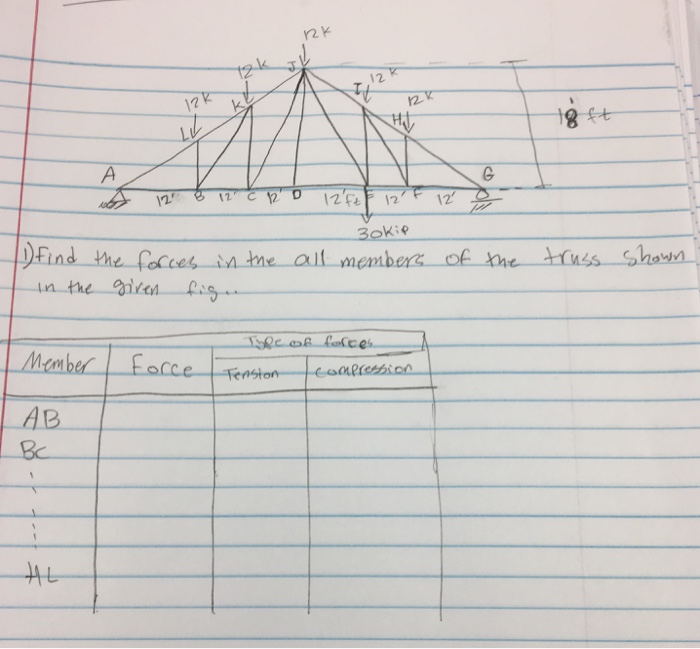 12k
12k
J
12k
I
12k
12k
K
H
L
18 ft
A
G
12'
B
12'
C
12'
D
12'ft
E
12'
F
12'
30kip
1) Find the forces in the all members of the truss shown
in the given fig..
Type of forces
Member
Force
Tension
compression
AB
BC
HL